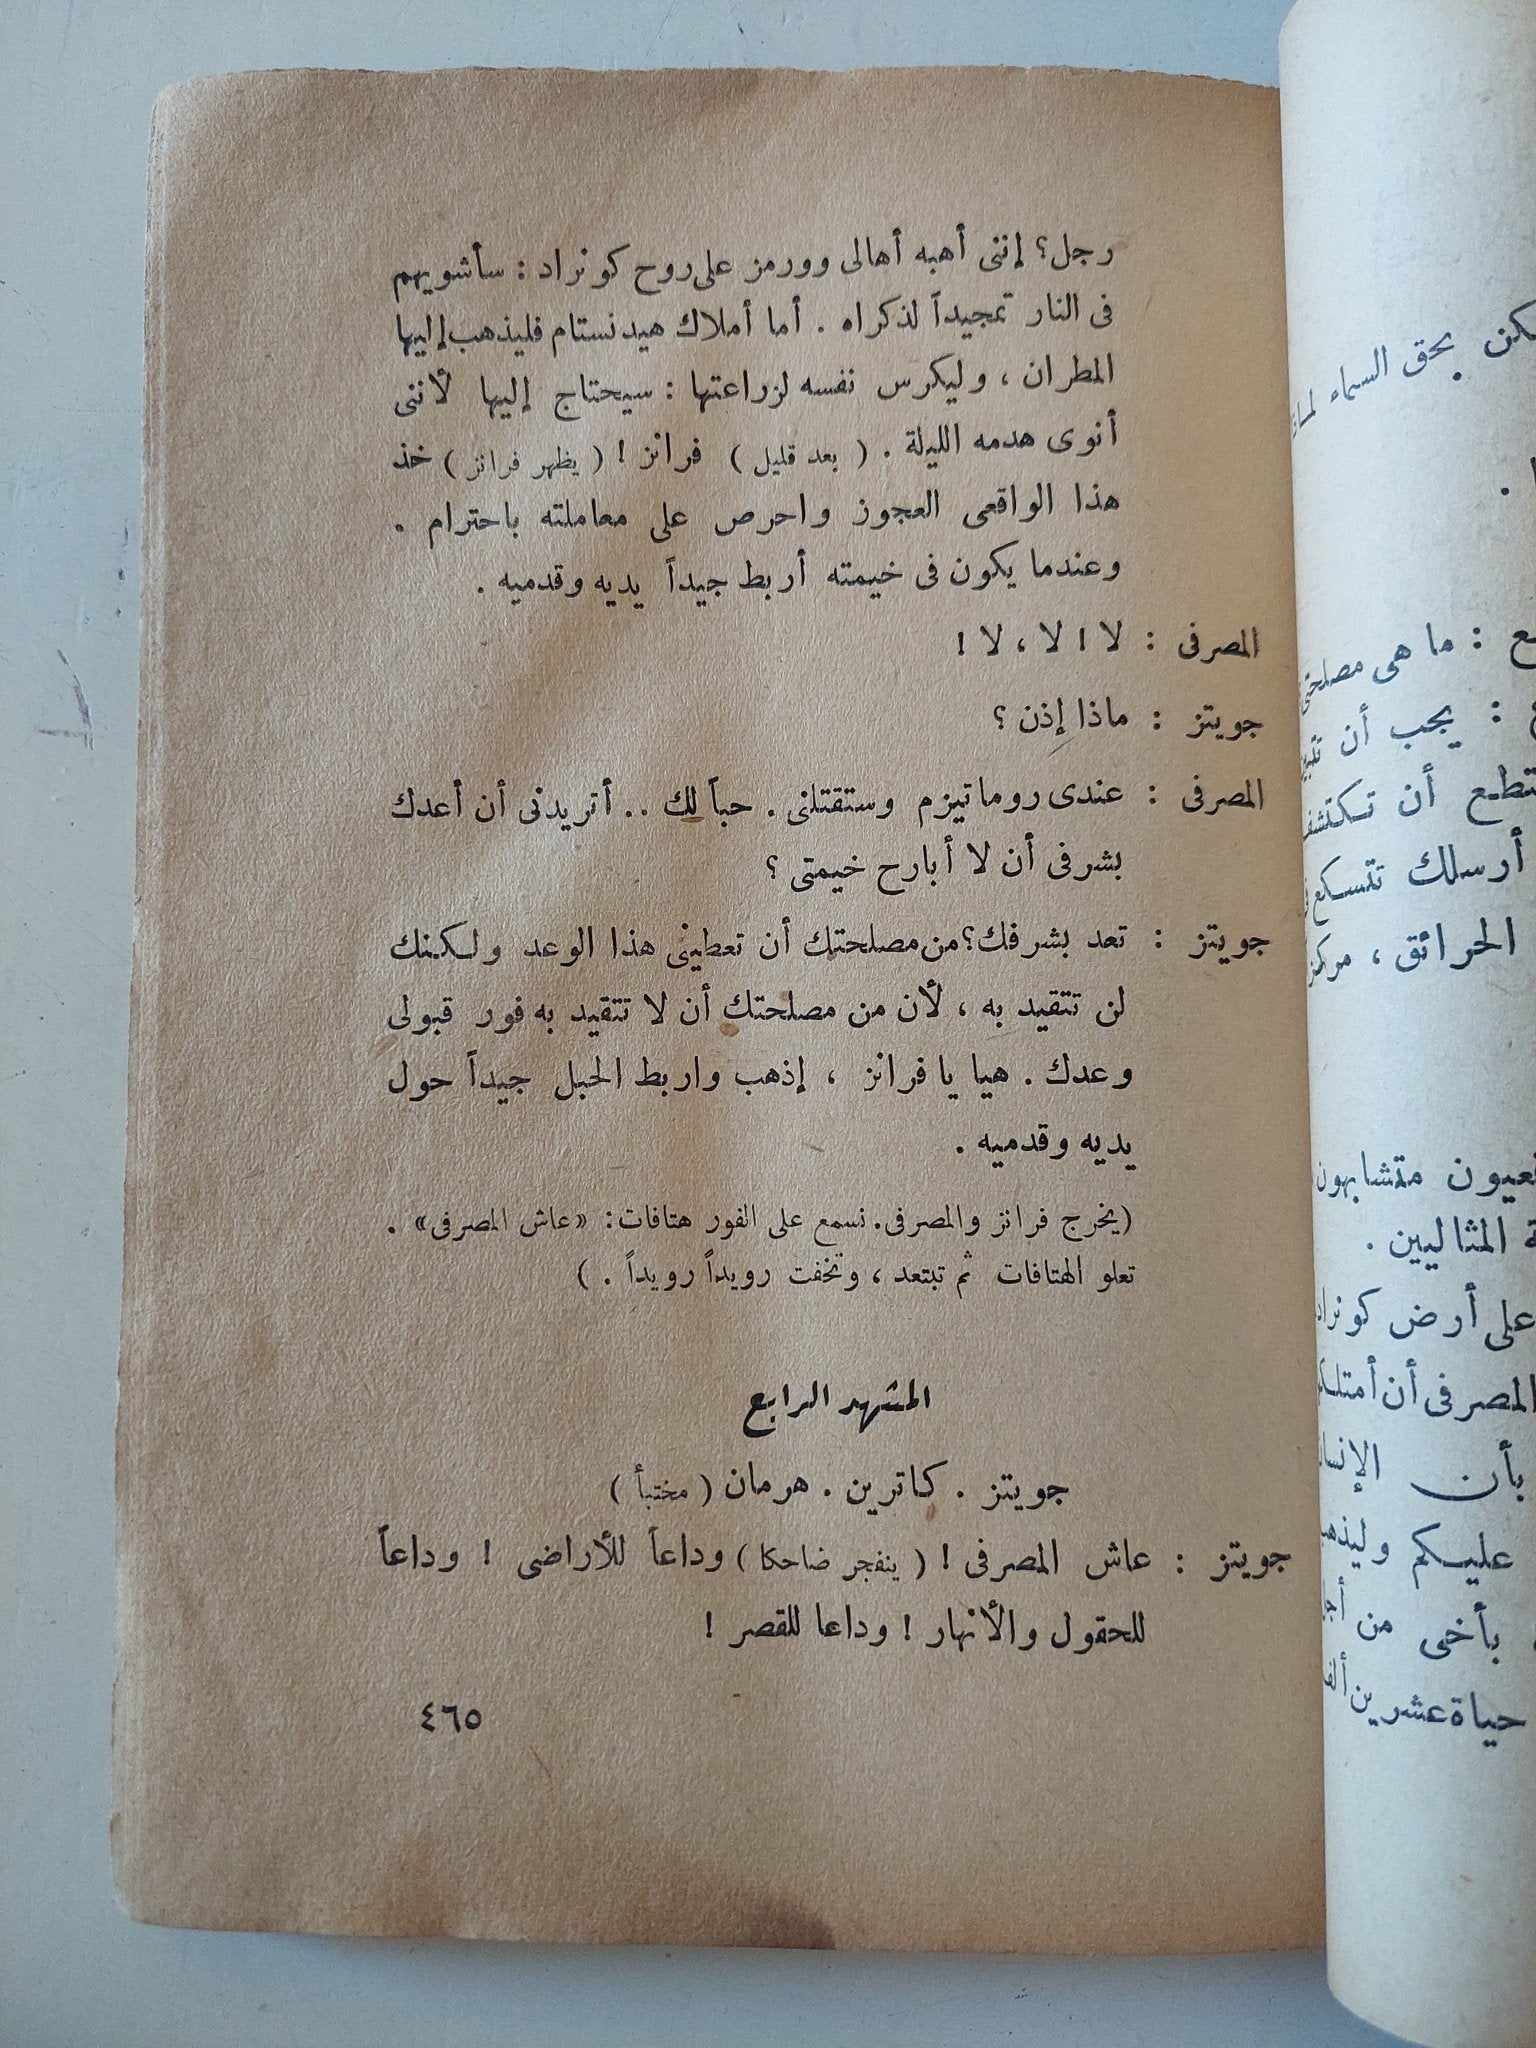 رجل؟ إننى أهبه أهالى وورمز على روح كونراد : سأشويهم
فى النار تمجيداً لذكراه . أما أملاك هيدنستام فليذهب إليها
المطران ، وليكرس نفسه لزراعتها : سيحتاج إليها لأننى
أنوى هدمه الليلة . ( بعد قليل ) فرانز ! ( يظهر فرانز ) خذ
هذا الواقعى العجوز واحرص على معاملته باحترام .
وعندما يكون فى خيمته أربط جيداً يديه وقدميه .
المصرفى : لا ! لا ، لا !
جويتز : ماذا إذن ؟
المصرفى : عندى روماتيزم وستقتلنى . حباً لك .. أتريدنى أن أعدك
بشرفى أن لا أبارح خيمتى ؟
جويتز : تعد بشرفك؟ من مصلحتك أن تعطينى هذا الوعد ولكنك
لن تتقيد به ، لأن من مصلحتك أن لا تتقيد به فور قبولى
وعدك . هيا يا فرانز ، إذهب واربط الحبل جيداً حول
يديه وقدميه .
(يخرج فرانز والمصرفى . نسمع على الفور هتافات : «عاش المصرفى» .
تعلو الهتافات ثم تبتعد ، وتخفت رويداً رويداً . )
المشهد الرابع
جويتز . كاترين . هرمان ( مختبأ )
جويتز : عاش المصرفى ! ( ينفجر ضاحكا ) وداعاً للأراضى ! وداعاً
للحقول والأنهار ! وداعا للقصر !
٤٦٥
بحق السماء
: ما هى
: يجب أن
أن تكتشف
أرسلك تتسكع
الحرائق ،
متشابهون
المثاليين .
على أرض كونراد
المصرفى أن
بأن
عليكم
بأخى من
حياة عشرين